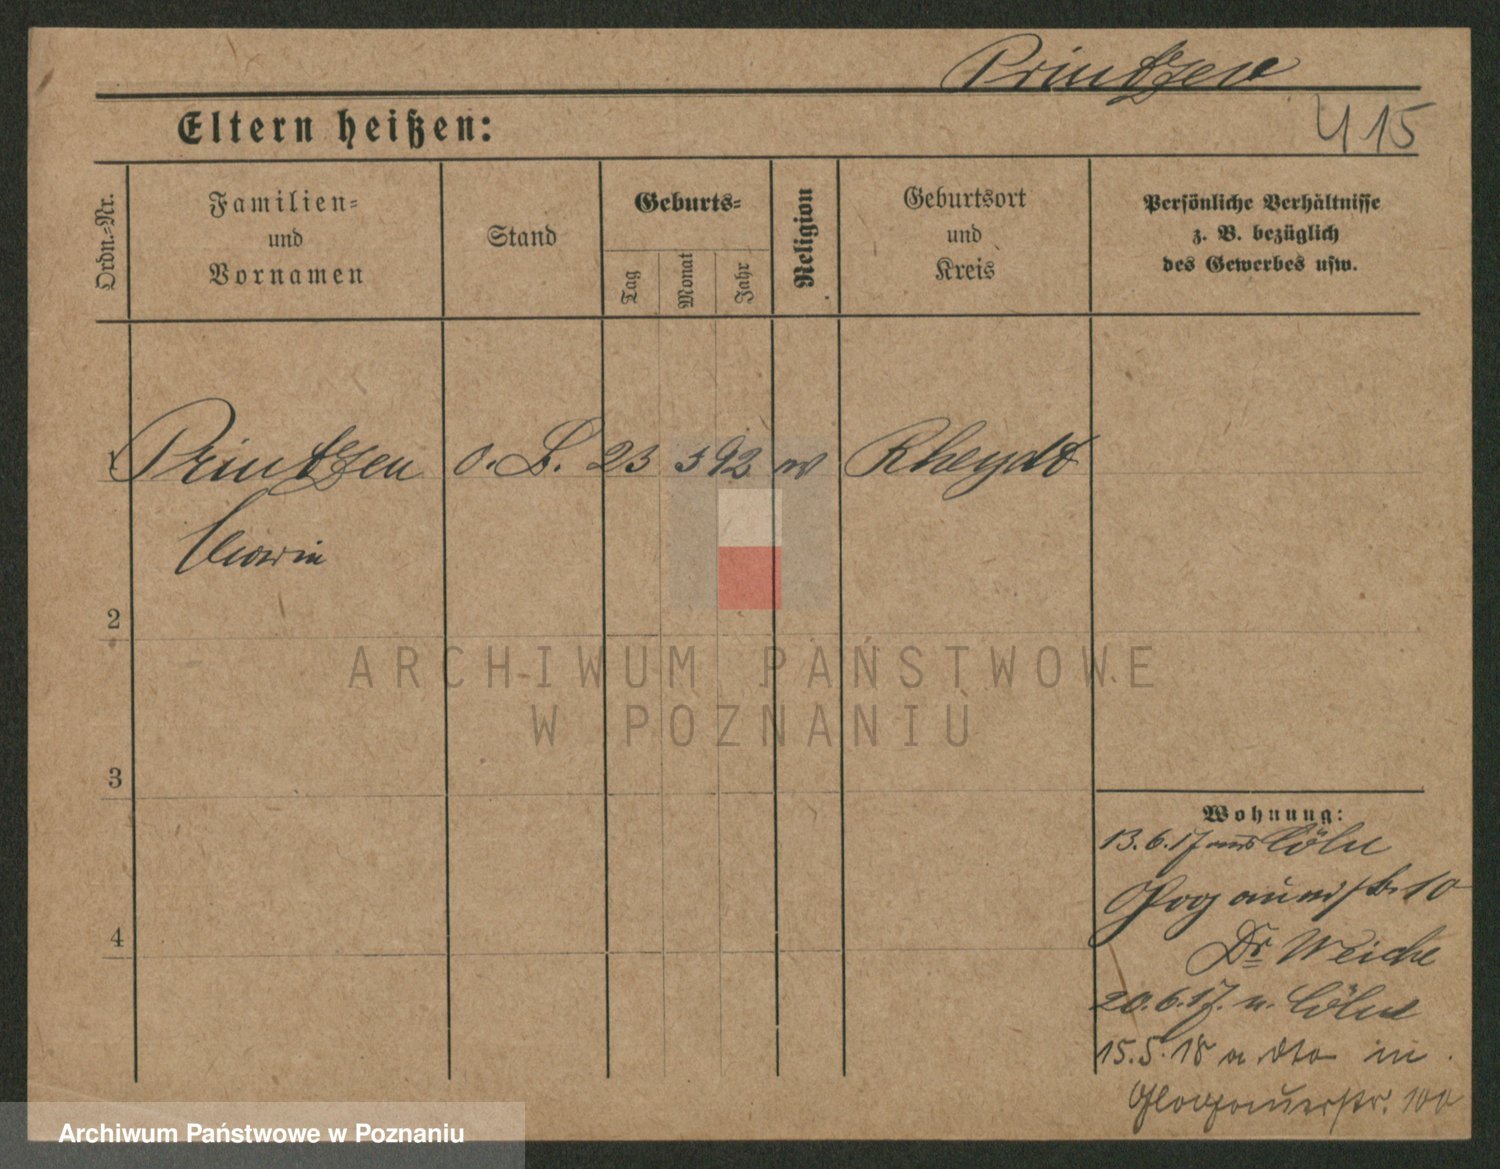 Printzen
415
Eltern heißen:
Ordn.-Nr.
Familien-
und
Vornamen
Stand
Geburts-
Tag
Monat
Jahr
Religion
Geburtsort
und
Kreis
Persönliche Verhältnisse
z. B. bezüglich
des Gewerbes usw.
1 Printzen o. B. 23 3 92 Rheydt
2
3
4
Wohnung:
13.6.17 aus Cöln
10
Dr Weiche
20.6.17. n. Cöln
15.5.18 a dto in
Glogauerstr. 100
ARCHIWUM PAŃSTWOWE
W POZNANIU
Archiwum Państwowe w Poznaniu